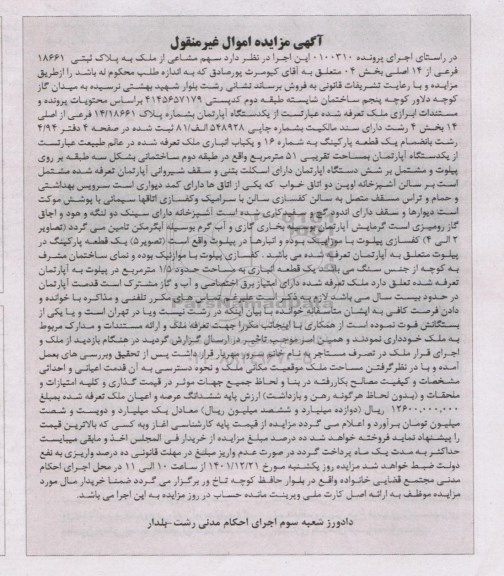 آگهی مزایده اموال غیرمنقول
در راستای اجرای پرونده ۰۱۰۰۳۱۰ این اجرا در نظر دارد سهم مشاعی از ملک به پلاک ثبتی ۱۸۶۶۱
فرعی از ۱۴ اصلی بخش ۰۴ متعلق به آقای کیومرث پورصادق که به اندازه طلب محکوم له باشد را ازطریق
مزایده و با رعایت تشریفات قانونی به فروش برساند نشانی رشت بلوار شهید بهشتی نرسیده به میدان گاز
کوچه دلاور کوچه پنجم ساختمان شایسته طبقه دوم کدپستی ۴۱۴۵۶۵۷۱۷۹ براساس محتویات پرونده و
مستندات ابرازی ملک تعرفه شده عبارتست از یکدستگاه آپارتمان بشماره پلاک ۱۴/۱۸۶۶۱ فرعی از اصلی
۱۴ بخش ۴ رشت دارای سند مالکیت بشماره چاپی ۵۴۸۹۲۸ الف/۸۱ ثبت شده در صفحه ۴ دفتر ۴/۹۴
رشت بانضمام یک قطعه پارکینگ به شماره ۱۶ و یکباب انباری ملک تعرفه شده در عالم طبیعت عبارتست
از یکدستگاه آپارتمان بمساحت تقریبی ۵۱ مترمربع واقع در طبقه دوم ساختمانی بشکل سه طبقه بر روی
پیلوت و مشتمل بر شش دستگاه اپارتمان دارای اسکلت بتنی و سقف شیروانی آپارتمان تعرفه شده مشتمل
است بر سالن آشپزخانه اوپن دو اتاق خواب که یکی از اتاق ها دارای کمد دیواری است سرویس بهداشتی
و حمام و تراس مسقف متصل به سالن کفسازی سالن با سرامیک وکفسازی اتاقها سیمانی با پوشش موکت
است دیوارها و سقف دارای اندود گچ و سفیدکاری شده است آشپزخانه دارای سینک دو لنگه و هود و اجاق
گاز رومیزی است گرمایش آپارتمان بوسیله بخاری گازی و آب گرم بوسیله آبگرمکن تامین می گردد (تصاویر
۲ الی ۴) کفسازی پیلوت با موزاییک بوده و انبارها در پیلوت واقع است (تصویر ۵) یک قطعه پارکینگ در
پیلوت متعلق به آپارتمان تعرفه شده می باشد . کفسازی پیلوت با موازئیک بوده و نمای ساختمان مشرف
به کوچه از جنس سنگ می باشد یک قطعه انباری به مساحت حدود ۱/۵ مترمربع در پیلوت به آپارتمان
تعرفه شده تعلق دارد ملک تعرفه شده دارای امتیاز برق اختصاصی و آب و گاز مشترک است قدمت آپارتمان
در حدود بیست سال می باشد لازم به ذکر است علیرغم تماس های مکرر تلفنی و مذاکره با خوانده و
دادن فرصت کافی به ایشان متاسفانه خوانده با بیان اینکه در رشت نیست ویا در تهران است و یا یکی از
بستگانش فوت نموده است از همکاری با اینجانب مکررا جهت تعرفه ملک و ارائه مستندات و مدارک مربوط
به ملک خودداری نمودند و همین امر موجب تاخیر در ارسال گزارش گردید در هنگام بازدید از ملک و
اجرای قرار ملک در تصرف مستاجر به نام خانم مریم مهریار قرار داشت پس از تحقیق وبررسی های بعمل
آمده و با در نظرگرفتن مساحت ملک موقعیت مکانی ملک و نحوه دسترسی به آن قدمت اعیانی و احداثی
مشخصات و کیفیت مصالح بکاررفته در بنا و لحاظ جمیع جهات موثر در قیمت گذاری و کلیه امتیازات و
ملحقات و (بدون لحاظ هرگونه رهن و بازداشت) ارزش پایه ششدانگ عرصه و اعیان ملک تعرفه شده بمبلغ
۱۲۶۰۰,۰۰۰,۰۰۰ ریال (دوازده میلیارد و ششصد میلیون ریال) معادل یک میلیارد و دویست و شصت
میلیون تومان برآورد و اعلام می گردد مزایده از قیمت پایه کارشناسی اغاز وبه کسی که بالاترین قیمت
را پیشنهاد نماید فروخته خواهد شد ده درصد مبلغ مزایده از خریدار فی المجلس اخذ و مابقی میبایست
حداکثر به مدت یک ماه پرداخت گردد در صورت عدم واریز مبلغ در مهلت قانونی ده درصد واریزی به نفع
دولت ضبط خواهد شد مزایده روز یکشنبه مورخ ۱۴۰۱/۱۲/۲۱ از ساعت ۱۰ الی ۱۱ در محل اجرای احکام
مدنی مجتمع قضایی خانواده واقع در بلوار حافظ کوچه تاخ ور برگزار می گردد ضمنا خریدار مال مورد
مزایده موظف به ارائه اصل کارت ملی وپرینت مانده حساب در روز مزایده به این اجرا می باشد.
دادورز شعبه سوم اجرای احکام مدنی رشت -یلدار